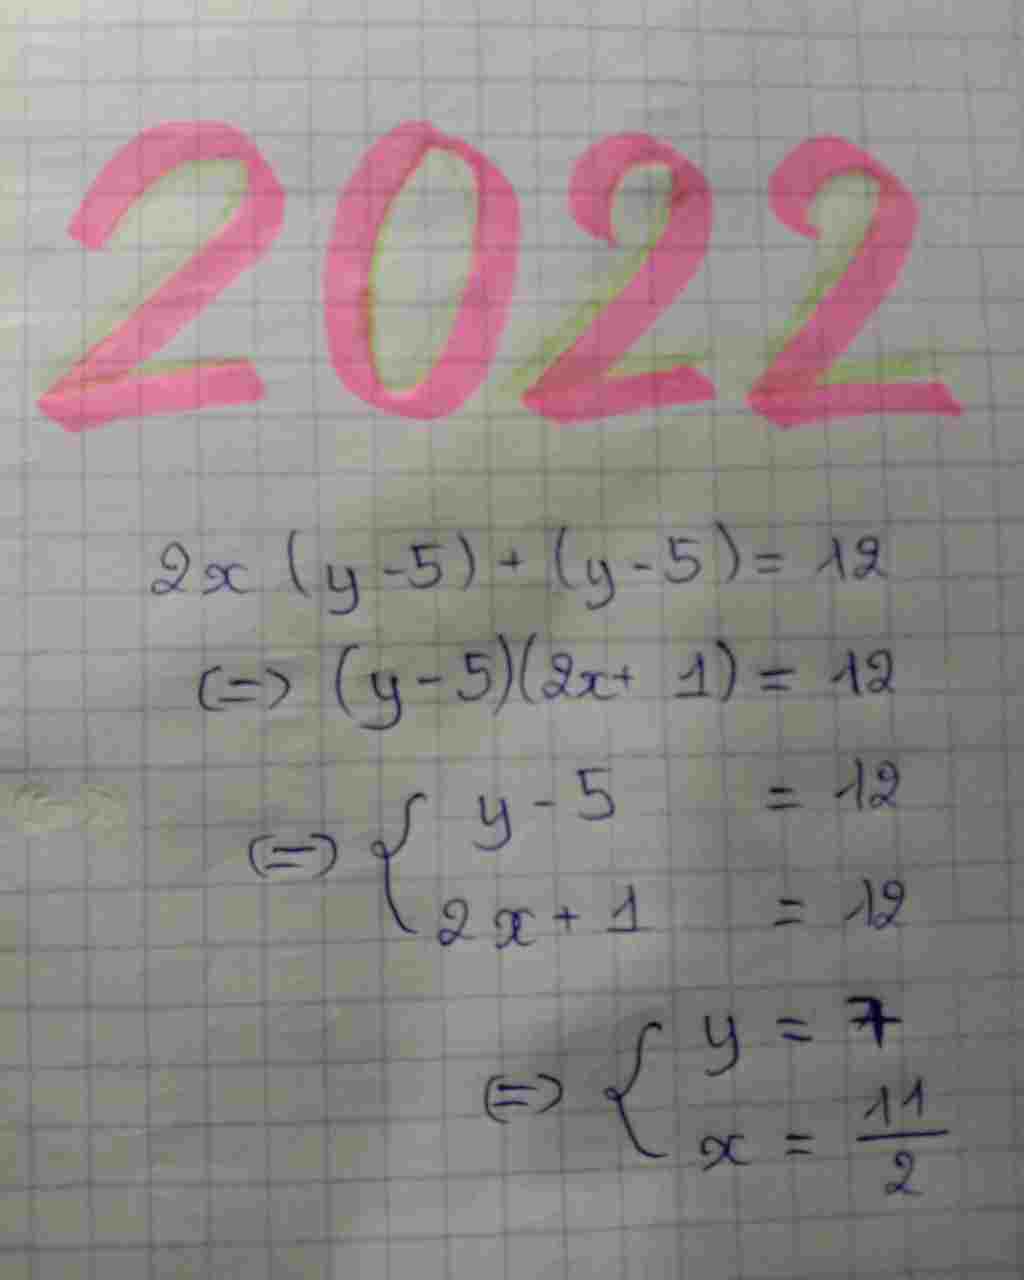 2022
2x (y - 5) + (y - 5) = 12
(=) (y - 5)(2x + 1) = 12
(=) { y - 5 = 12
2x + 1 = 12
(=) { y = 7
x = 11/2